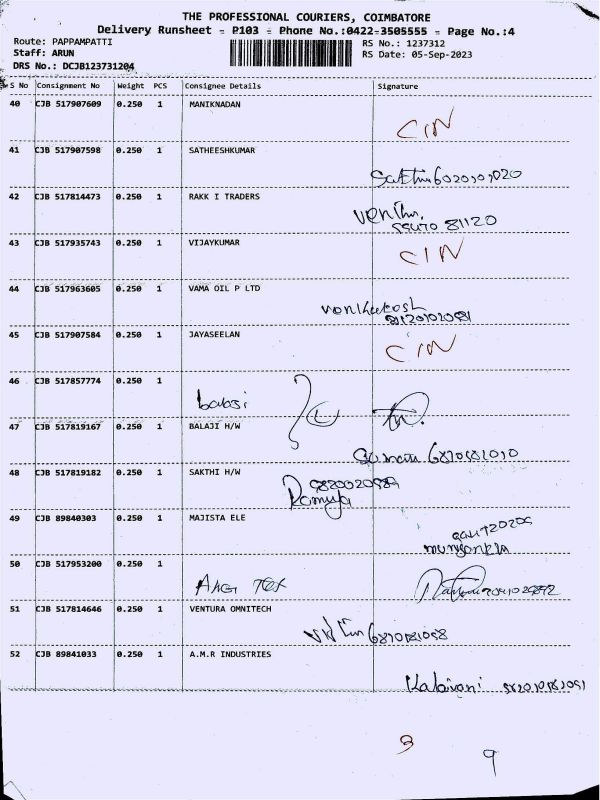 THE PROFESSIONAL COURIERS, COIMBATORE
Delivery Runsheet - P103 - Phone No.:0422-3505555 - Page No.:4
Route: PAPPAMPATTI RS No.: 1237312
Staff: ARUN RS Date: 05-Sep-2023
DRS No.: DCJB123731204
S No Consignment No Weight PCS Consignee Details Signature
40 CJB 517907609 0.250 1 MANIKNADAN
CIN
41 CJB 517907598 0.250 1 SATHEESHKUMAR
42 CJB 517814473 0.250 1 RAKK I TRADERS
43 CJB 517935743 0.250 1 VIJAYKUMAR
CIN
44 CJB 517963605 0.250 1 VAMA OIL P LTD
45 CJB 517907584 0.250 1 JAYASEELAN
CIN
46 CJB 517857774 0.250 1
balaji
47 CJB 517819167 0.250 1 BALAJI H/W
48 CJB 517819182 0.250 1 SAKTHI H/W
Ramya
49 CJB 89840303 0.250 1 MAJISTA ELE
50 CJB 517953200 0.250 1
51 CJB 517814646 0.250 1 VENTURA OMNITECH
52 CJB 89841033 0.250 1 A.M.R INDUSTRIES
Kalaivani
3
9